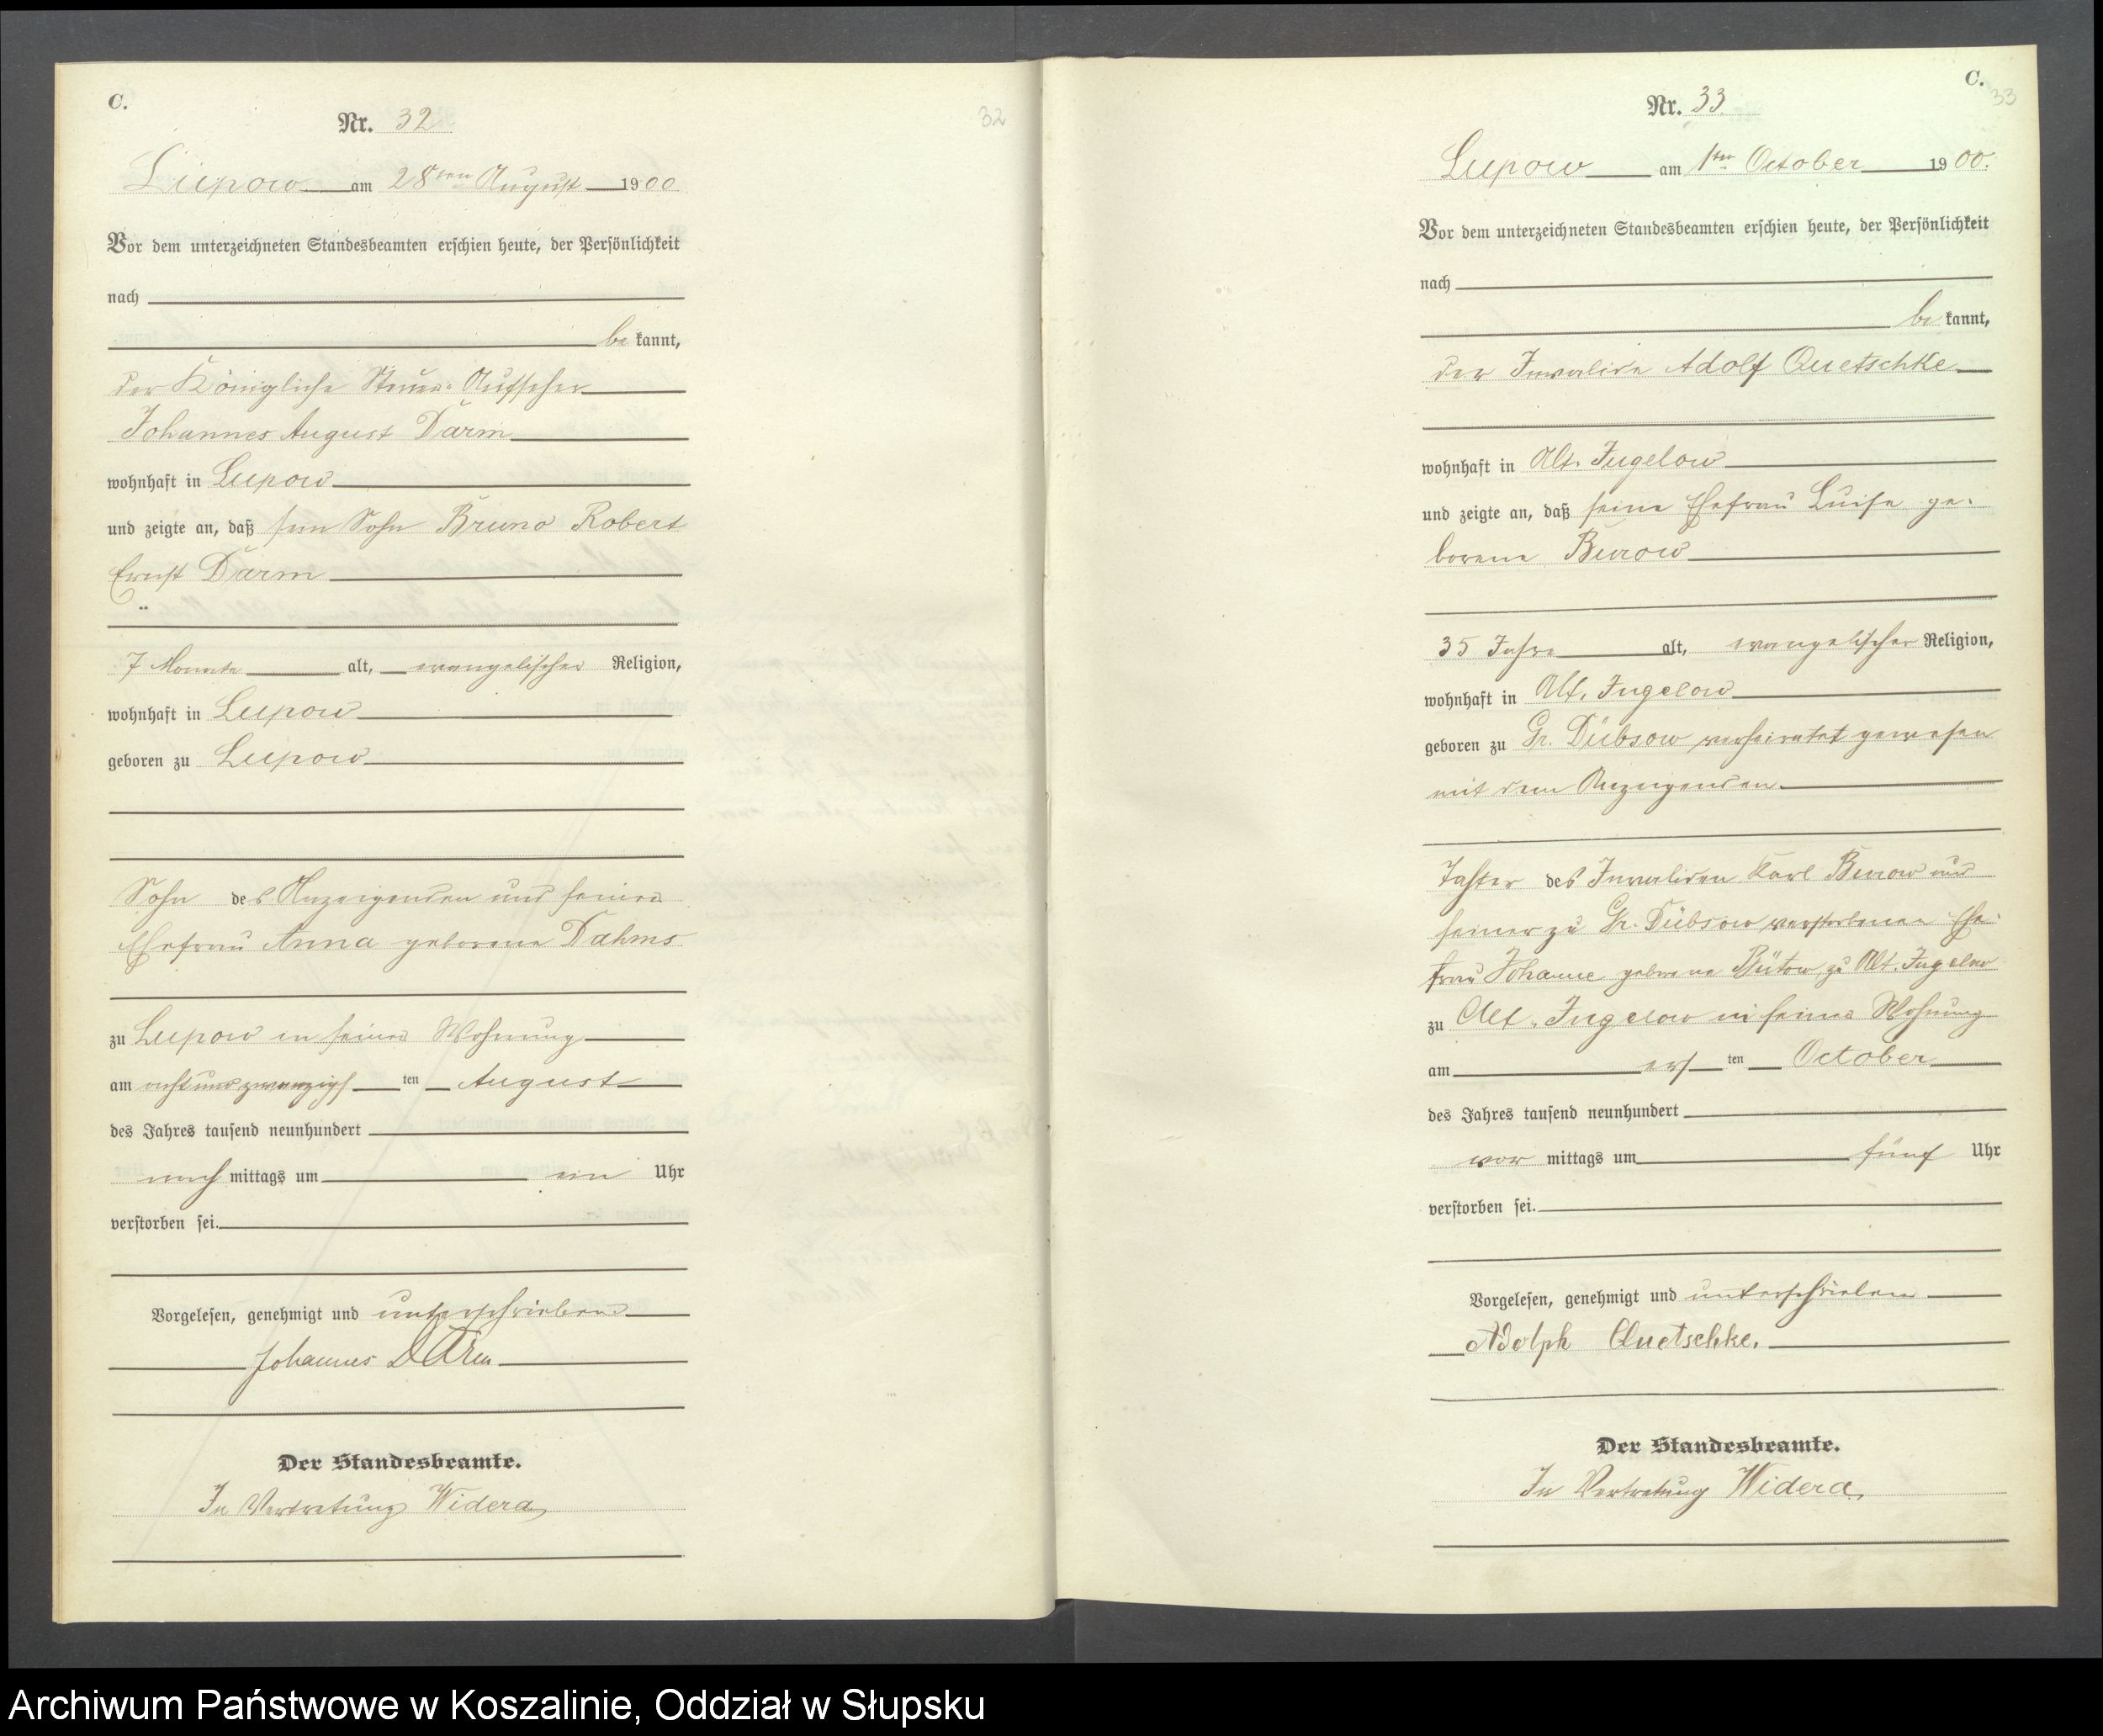 C.
Nr. 32
32
Lupow am 28ten August 1900
Vor dem unterzeichneten Standesbeamten erschien heute, der Persönlichkeit
nach
be kannt,
der Königliche Steuer-Aufseher
Johannes August Darm
wohnhaft in Lupow
und zeigte an, daß sein Sohn Bruno Robert
Ernst Darm
7 Monate alt, evangelischer Religion,
wohnhaft in Lupow
geboren zu Lupow
Sohn des Anzeigenden und seiner
Ehefrau Anna geborene Dahms
zu Lupow in seiner Wohnung
am achtundzwanzigs ten August
des Jahres tausend neunhundert
nach mittags um ein Uhr
verstorben sei.
Vorgelesen, genehmigt und unterschrieben
Johannes Darm
Der Standesbeamte.
In Vertretung Widera
C.
33
Nr. 33.
Lupow am 1ten October 1900.
Vor dem unterzeichneten Standesbeamten erschien heute, der Persönlichkeit
nach
be kannt,
der Invalide Adolf Quetschke
wohnhaft in Alt-Jugelow
und zeigte an, daß seine Ehefrau Luise ge-
borene Burow
35 Jahre alt, evangelischer Religion,
wohnhaft in Alt-Jugelow
geboren zu Gr. Dübsow verheiratet gewesen
mit dem Anzeigenden
Tochter des Invaliden Karl Burow und
seiner zu Gr. Dübsow verstorbenen Ehe-
frau Johanne geborene Bütow, zu Alt-Jugelow
zu Alt-Jugelow in seiner Wohnung
am ers ten October
des Jahres tausend neunhundert
vor mittags um fünf Uhr
verstorben sei.
Vorgelesen, genehmigt und unterschrieben
Adolph Quetschke.
Der Standesbeamte.
In Vertretung Widera
Archiwum Państwowe w Koszalinie, Oddział w Słupsku